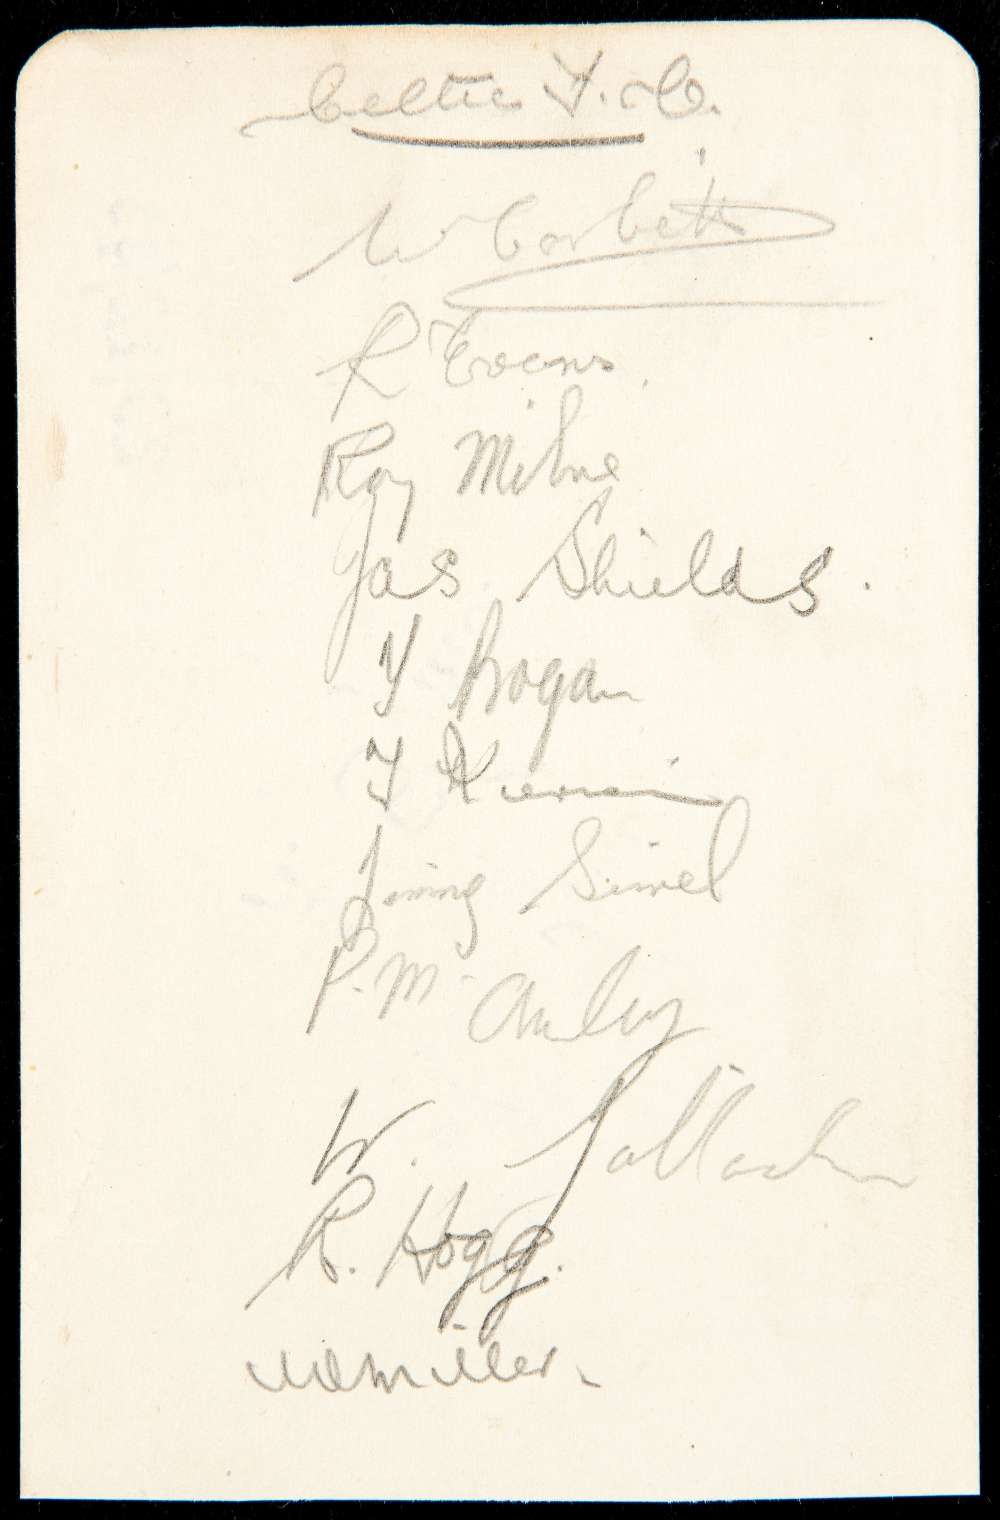 Celtic F.C.
W Corbett
R Evans
Roy Milne
Jas Shields.
F Rogan
T Kiernan
Jimmy Sirrel
P. Mc Auley
W. Gallacher
R. Hogg.
W Miller.